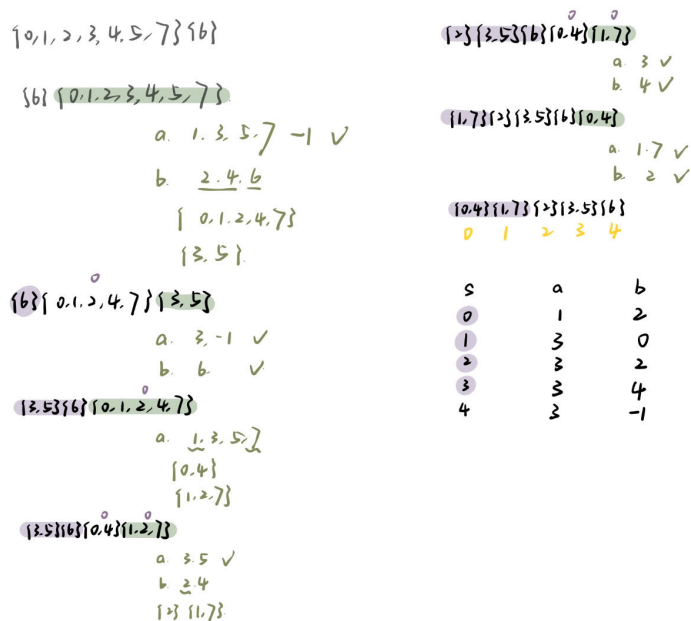 {0,1,2,3,4,5,7}{6}
{6}{0,1,2,3,4,5,7}
a. 1.3,5,7 -1 ✓
b. 2.4.6
{0,1,2,4,7}
{3,5}
0
{6}{0,1,2,4,7}{3,5}
a. 3,-1 ✓
b. 6 ✓
0
{3.5}{6}{0,1,2,4,7}
a. 1,3,5,7
{0,4}
{1,2,7}
0 0
{3.5}{6}{0,4}{1,2,7}
a. 3.5 ✓
b. 2.4
{2}{1,7}
0 0
{2}{3.5}{6}{0.4}{1,7}
a. 3 ✓
b. 4 ✓
{1,7}{2}{3.5}{6}{0,4}
a. 1.7 ✓
b. 2 ✓
{0.4}{1,7}{2}{3.5}{6}
0 1 2 3 4
s a b
0 1 2
1 3 0
2 3 2
3 3 4
4 3 -1